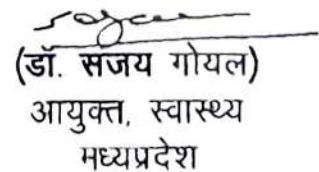 (डॉ. संजय गोयल)
आयुक्त, स्वास्थ्य
मध्यप्रदेश